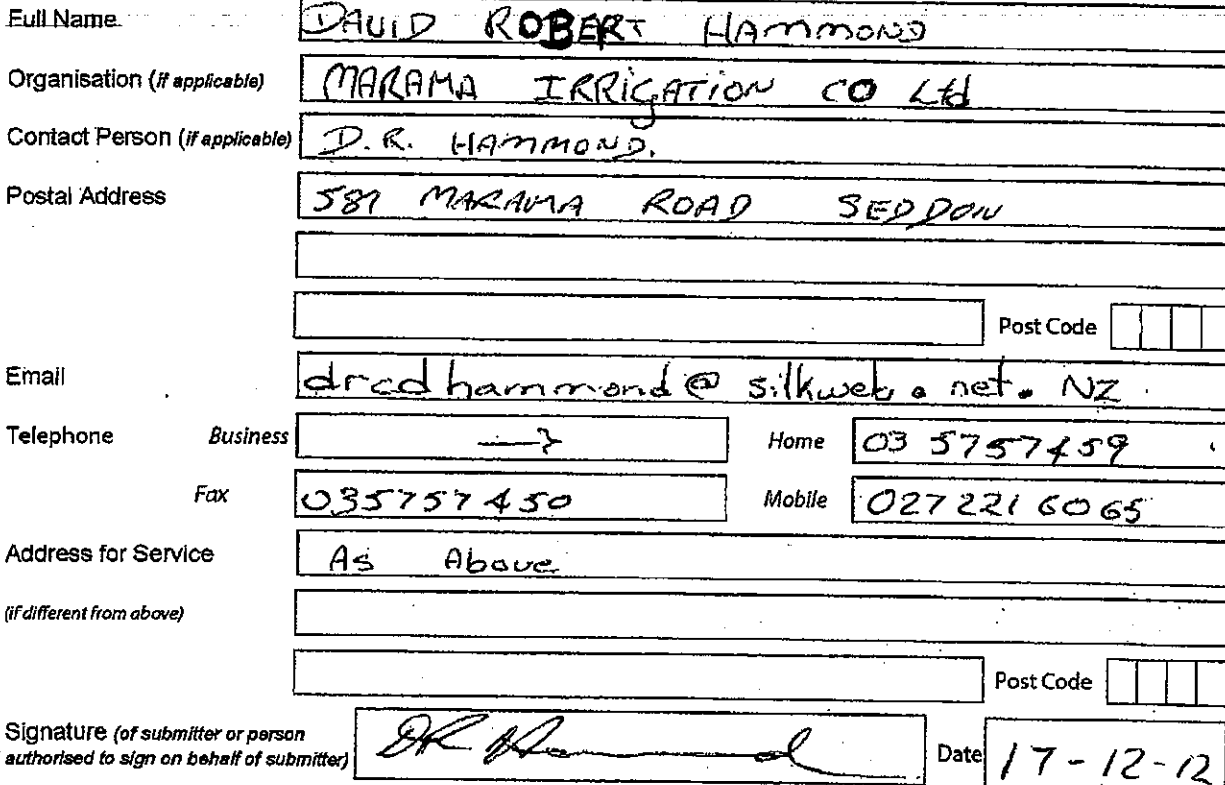 Full Name DAVID ROBERT HAMMOND
Organisation (if applicable) MARAMA IRRIGATION CO Ltd
Contact Person (if applicable) D.R. HAMMOND.
Postal Address 581 MARAMA ROAD SEDDON
Post Code
Email drcdhammond@silkweb.net.NZ
Telephone Business Home 03 5757459
Fax 035757450 Mobile 027 221 6065
Address for Service As Above
(if different from above)
Post Code
Signature (of submitter or person DR Hammond Date 17-12-12
authorised to sign on behalf of submitter)